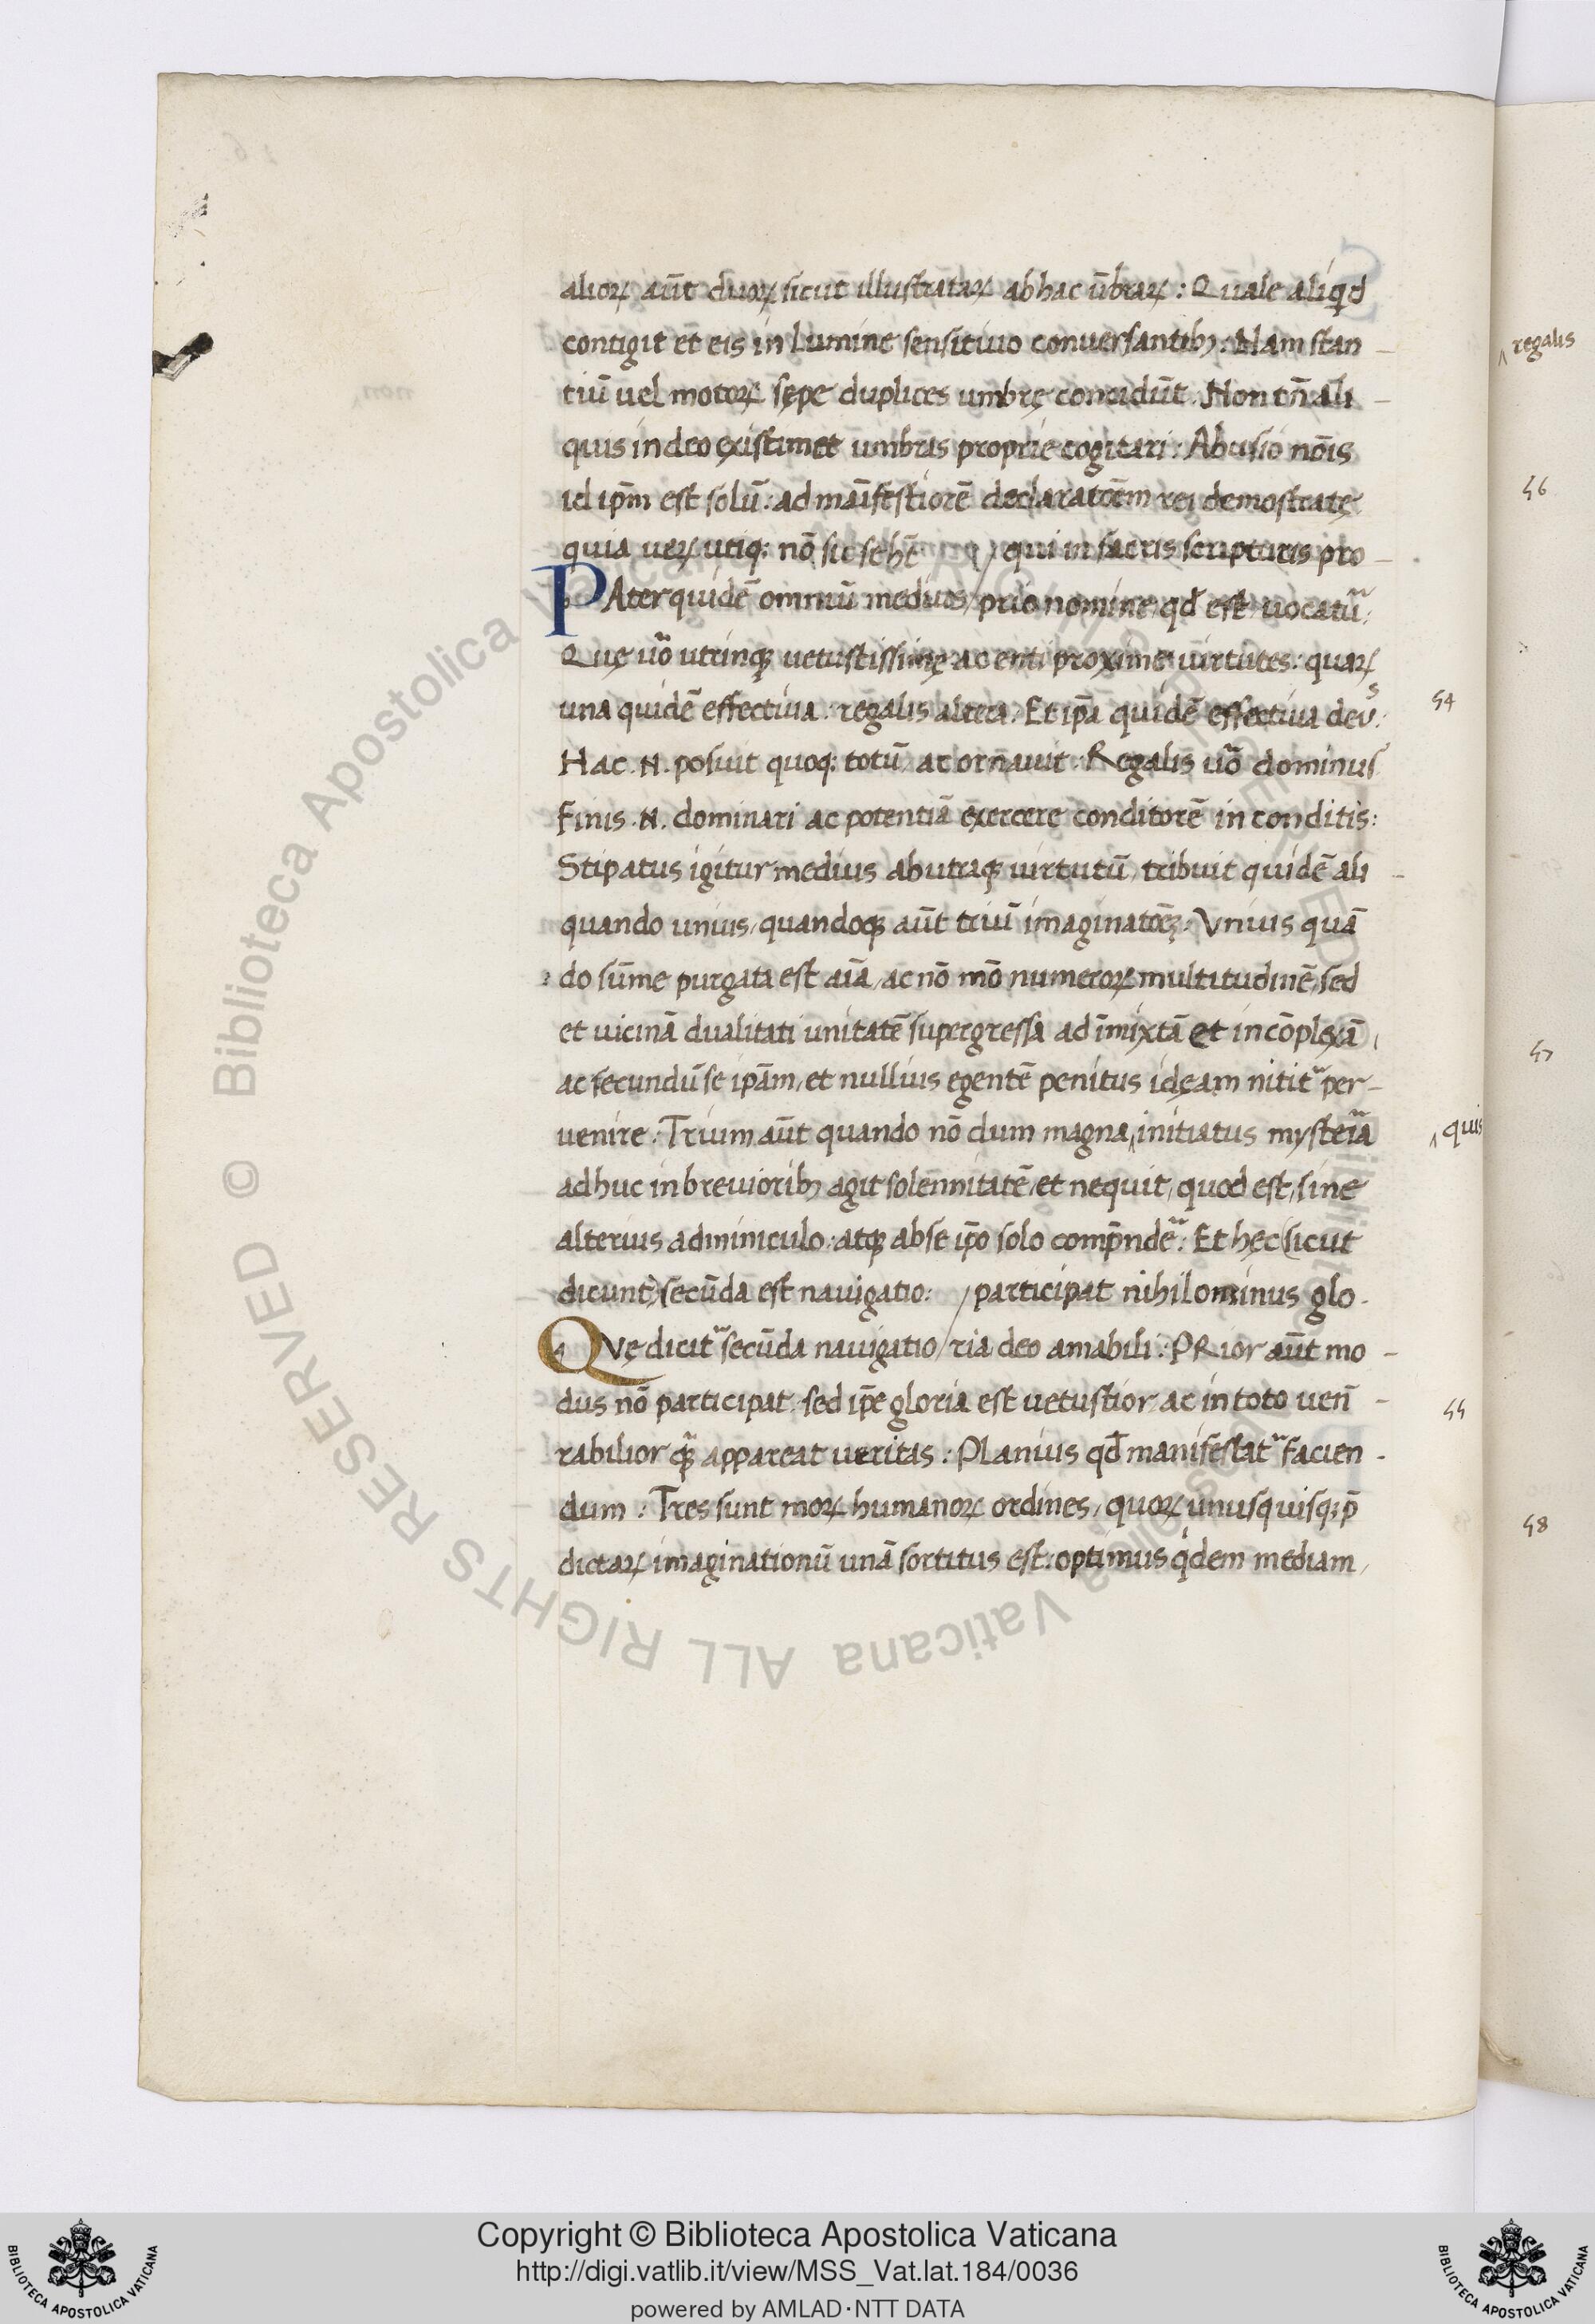 alioꝝ aūt duoꝝ sicut illustrataꝝ ab hac ūbraꝝ : Quale aliqd
contigit et eis in Lumine sensitiuo conuersantibꝫ : Nam stan -
tiū uel motoꝝ sępe duplices umbrę concidūt . Non tn̄ ali -
quis in deo existimet umbras proprie cogitari : Abusio nōis
id ip̄m est solū : ad māifestiorē declaratōem rei demostratę
quia ueꝝ utiqꝫ nō sic se hēt / qui in sacris scripturis pro -
PAter quidē omniū medius / prio nomine qd̄ est uocatur̃ :
Quę uo͂ utrinqꝫ uetustissimę ac enti proximę uirtutes : quaꝝ
una quidē effectiua : regalis altera . Et ip̄a quidē effectiua deus :
Hac .N. posuit quoqꝫ totū ac ornauit : Regalis uo͂ dominus
Finis .N. dominari ac potentiā exercere conditorē in conditis :
Stipatus igitur medius ab utraqꝫ uirtutū tribuit quidē ali -
quando unius / quandoqꝫ aūt triū imaginatōeꝫ : Vnius quā
do sūme purgata est aīa / ac nō mō numeroꝝ multitudinē sed
et uicinā dualitati unitatē supergressa ad īmixtā et incōplexā
ac secundū se ipām / et nullius egentē penitus idęam nitit̃ per -
uenire : Trium aūt quando nō dum magna ‸ initiatus mysteria
^ quis
adhuc in breuioribꝫ agit solennitatē et nequit / quod est / sine
alterius adminiculo : atqꝫ ab se ip̄o solo comp̄ndē : Et hęc (sicut
dicunt) secūda est nauigatio : / participat nihilominus glo -
QVę dicit̃ secūda nauigatio / ria deo amabili : PRior aūt mo -
dus nō participat / sed ip̄e gloria est uetustior / ac in toto uen̄ -
rabilior qꝫ̃ appareat ueritas : PLanius qd̄ manifestat̃ facien -
dum : Tres sunt moꝝ humanoꝝ ordines / quoꝝ unusquisqꝫ p̄
dictaꝝ imaginationū unā sortitus est : optimus qdem mediam
^ regalis
Copyright © Biblioteca Apostolica Vaticana
http://digi.vatlib.it/view/MSS_Vat.lat.184/0036
powered by AMLAD·NTT DATA
BIBLIOTECA APOSTOLICA VATICANA
BIBLIOTECA APOSTOLICA VATICANA
© Biblioteca Apostolica Vaticana ALL RIGHTS RESERVED